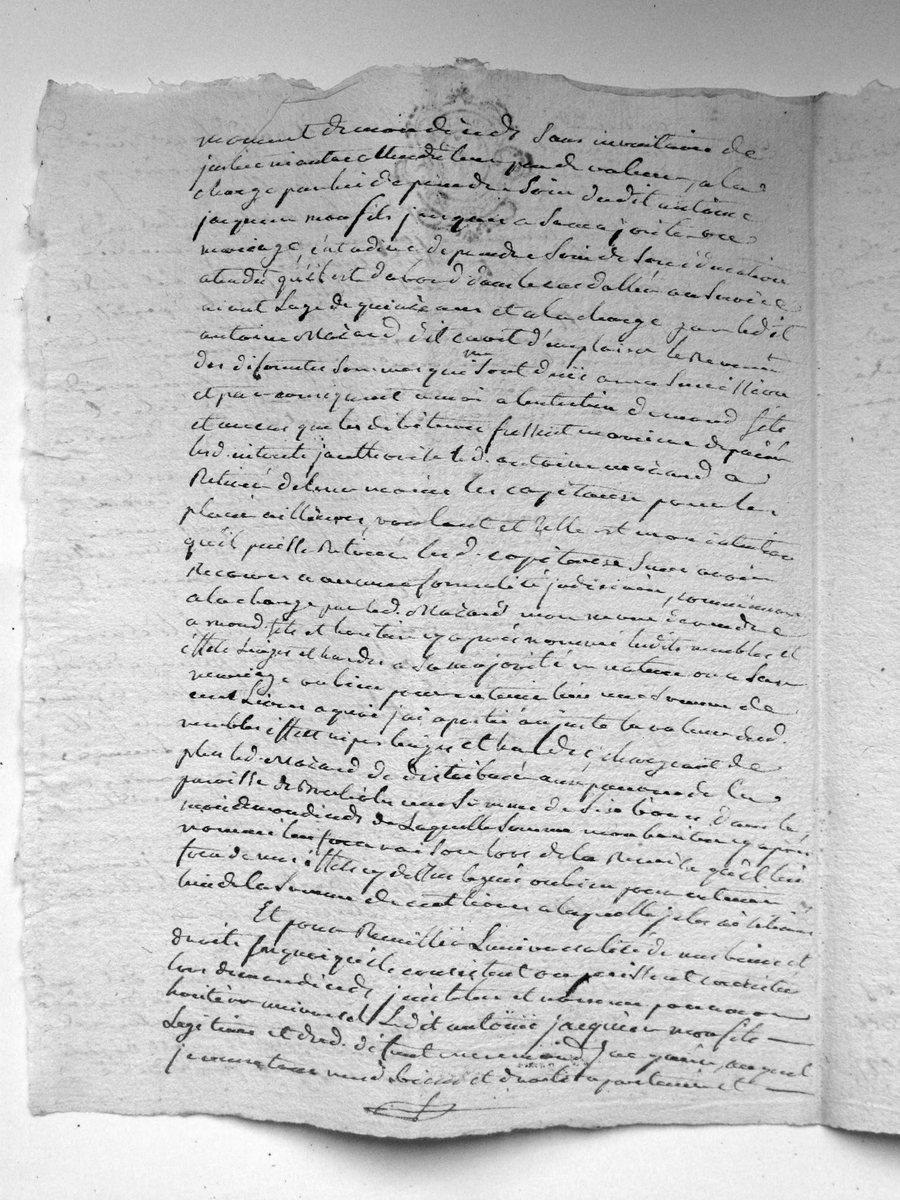 moment de mon dèceds sans inventaire de
justice m attendu leur peu de valeur, a la
charge par lui de prendre soin dudit antoine
jacquier mon fils jusques a sa majorité ou
mariage, c'est adire de prendre soin de son éducation
atendu qu'il est dabord dans le cas d'aller au service
aiant l'age de quinze ans et a la charge par ledit
antoine Mazard d'il d'emplaier le Revenu
des diférentes sommes qui me sont dues a ma succession
et par conséquent a moi a l'entretien de mond. fils
et au cas que les débiteurs fissent maniere de païer
lesd. interets jauthorise led. antoine mazard a
Retirer de leurs mains les capitaux pour les
placer ailleurs, voulant et telle est mon intention
qu'il puisse Retirer lesd. capitaux sans avoir
Recours a aucune formalité judiciaire,
a la charge par led. Mazard mon de rendre
a mond. fils et héritier cy après nommé lesdits meubles et
effets linges et hardes a sa majorité en nature ou a son
mariage ou bien pour en tenir lieu une somme de
cent Livres a quoi j'ai aprétié au juste la valeur desd.
meubles effets nipes linges et hardes, chargeant de
plus led. Mazard de distribuer aux pauvres de la
paroisse de une somme de six livres dans le
mois de mon dèceds de Laquelle somme mon héritier cy après
nommé lui faira raison lors de la Remise qu'il lui
faira de mes effets cy dessus legués ou bien pour en tenir
lieu de la somme de cent livres a laquelle je les ai
Et pour Receuillir Luniversalité de mes biens et
droits, en quoi qu'ils consistent ou puissent consister
lors de mon dèceds, j'ai et nomme pour mon
héritier universel Ledit antoine jacquier mon fils
Legitime et dud. défunt jacquier, auquel
je mesd. biens et droits apartiennent